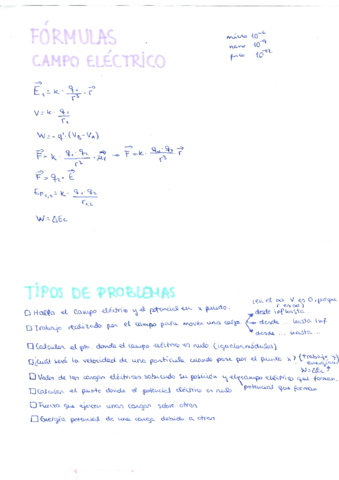 FÓRMULAS
CAMPO ELÉCTRICO
micro 10⁻⁶
nano 10⁻⁹
pico 10⁻¹²
E⃗₁ = K · q₁/r³ · r⃗
V = K · q₁/r₁
W = - q' · (V_B - V_A)
F⃗ = K · q₁ · q₂/r² · u⃗r → F⃗ = K · q₁ · q₂/r³ r⃗
F⃗ = q₂ · E⃗
Ep₁,₂ = K · q₁ · q₂/r₁,₂
W = ΔEc
TIPOS DE PROBLEMAS
(en el ∞ V es 0, porque r es ∞)
□ Halla el campo eléctrico y el potencial en x punto.
□ Trabajo realizado por el campo para mover una carga
desde inf hasta
desde ... hasta inf
desde ... hasta ...
□ Calcular el pto. donde el campo eléctrico es nulo (igualar módulos)
□ ¿Cuál será la velocidad de una partícula cuando pase por el punto x? (trabajo y energías)
W = ΔEc
□ Valor de las cargas eléctricas sabiendo su posición y el campo eléctrico que forman.
potencial que forman.
□ Calcular el punto donde el potencial eléctrico es nulo
□ Fuerza que ejercen unas cargas sobre otras
□ Energía potencial de una carga debido a otras